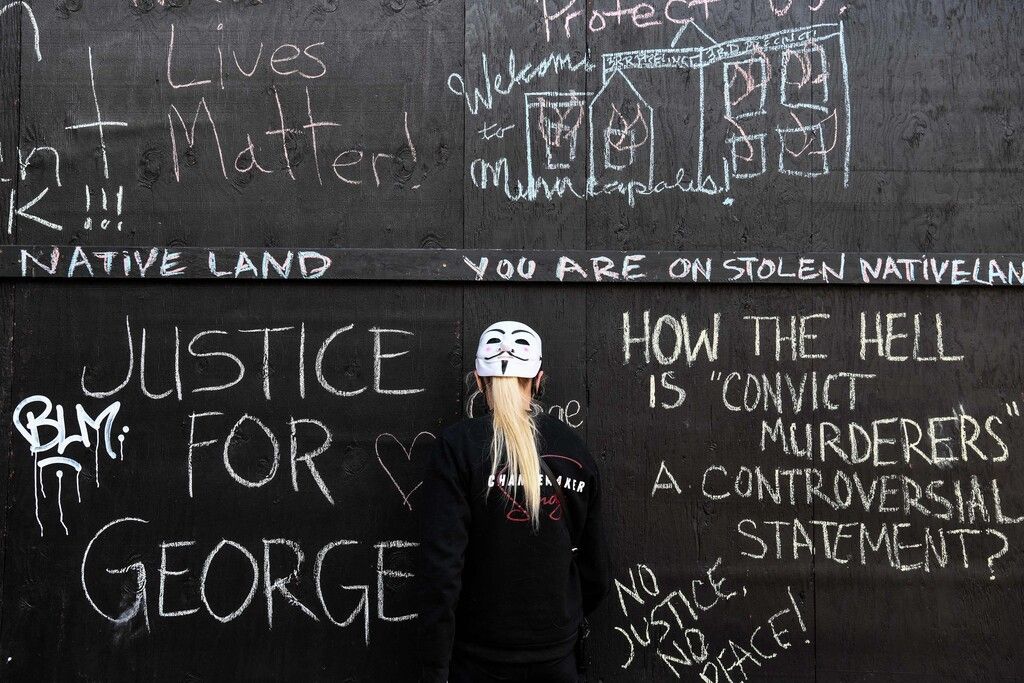 Lives
Matter!
!!!
Protect Us.
Welcome
to
Minneapolis!
3RD PRECINCT
NATIVE LAND
YOU ARE ON STOLEN NATIVE LAN
JUSTICE
FOR
GEORGE
BLM
CHANGEMAKER
HOW THE HELL
IS "CONVICT
MURDERERS"
A CONTROVERSIAL
STATEMENT?
NO
JUSTICE,
NO
PEACE!